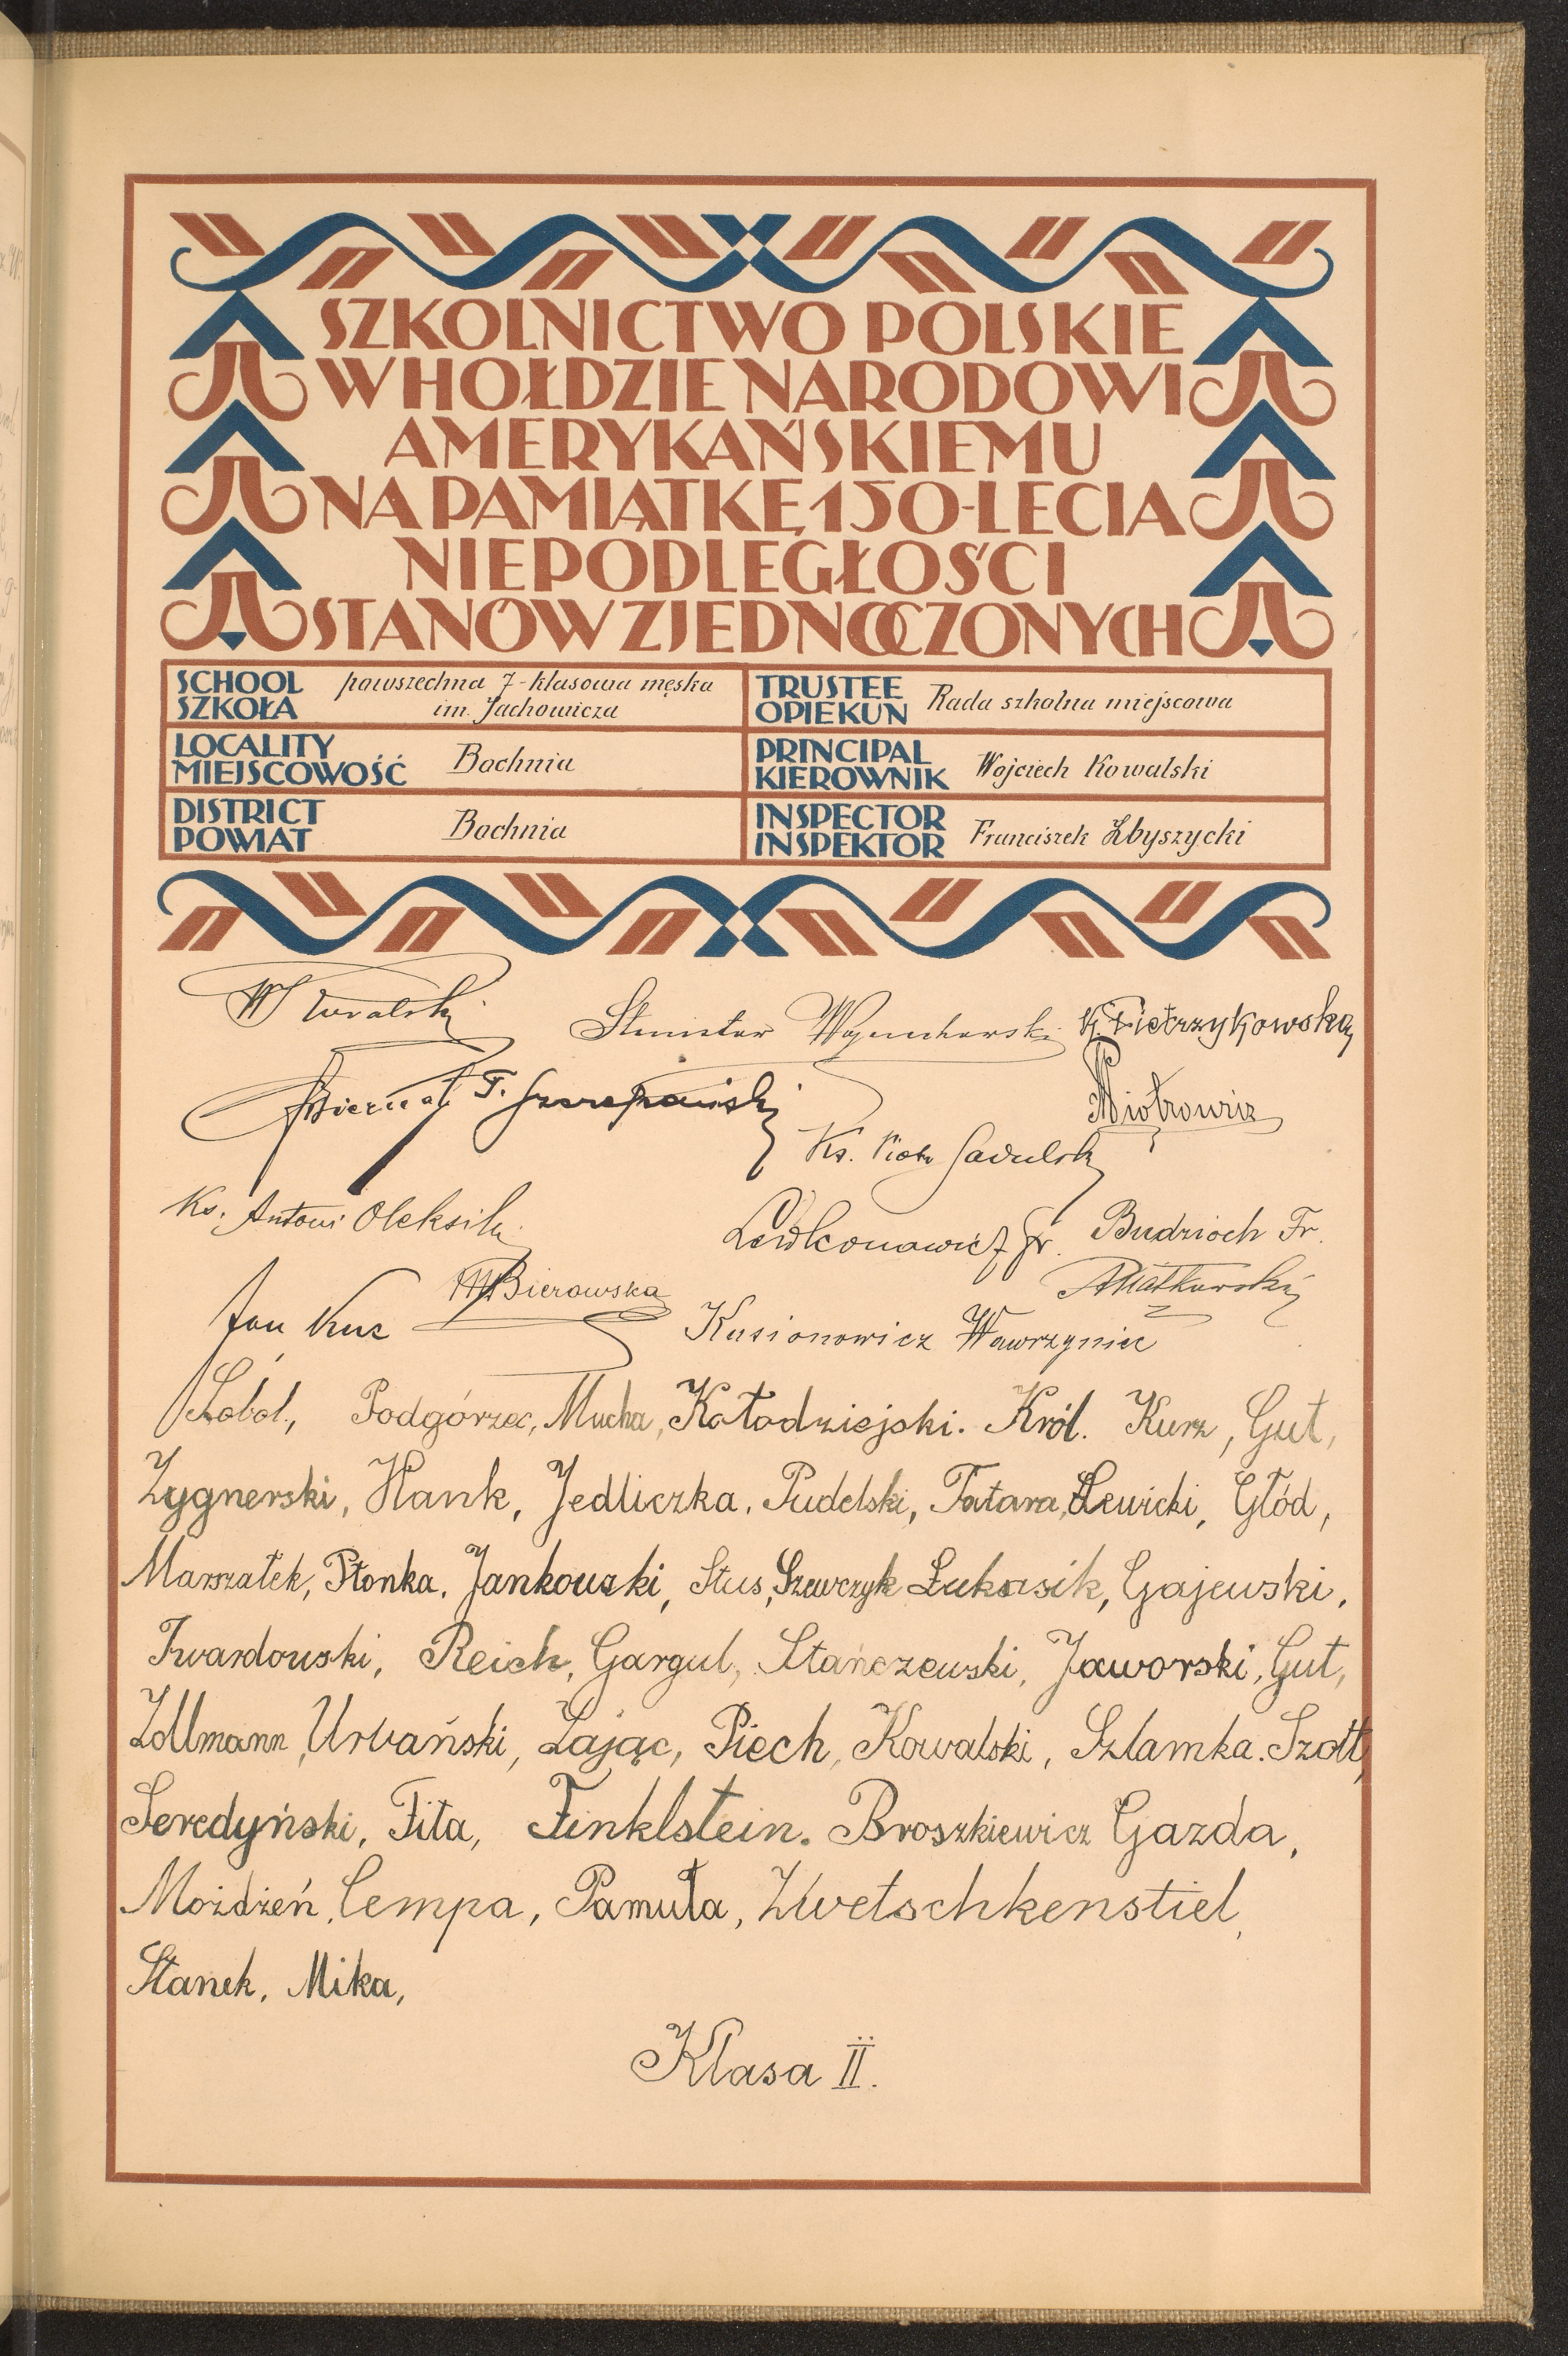 SZKOLNICTWO POLSKIE
W HOŁDZIE NARODOWI
AMERYKAŃSKIEMU
NA PAMIĄTKĘ 150-LECIA
NIEPODLEGŁOŚCI
STANÓW ZJEDNOCZONYCH
SCHOOL
SZKOŁA
powszechna 7-klasowa męska
im. Jachowicza
TRUSTEE
OPIEKUN
Rada szkolna miejscowa
LOCALITY
MIEJSCOWOŚĆ
Bochnia
PRINCIPAL
KIEROWNIK
Wojciech Kowalski
DISTRICT
POWIAT
Bochnia
INSPECTOR
INSPEKTOR
Franciszek Zbyszycki
W Kowalski
Stanisław K Pietrzykowska
Biernat F. Szczepański
Piotrowicz
Ks. Piotr Gadulski
Ks. Antoni Oleksik
Lewkonowicz Fr. Budzioch Fr.
M Bierowska A Matkowski
Jan Kuc Kusionowicz Wawrzyniec
Sobol, Podgórzec, Mucha, Kołodziejski. Król. Kurz, Gut,
Zygnerski, Hank, Jedliczka, Pudelski, Tatara, Lewicki, Głód,
Marszałek, Płonka, Jankowski, Stus, Szewczyk Łukasik, Gajewski,
Twardowski, Reich, Gargul, Stańczewski, Jaworski, Gut,
Zollmann, Urbański, Zając, Piech, Kowalski, Szlamka. Szott,
Seredyński, Fita, Finklstein. Broszkiewicz Gazda,
Możdżeń, Cempa, Pamuła, Zwetschkenstiel,
Stanek, Mika,
Klasa II.